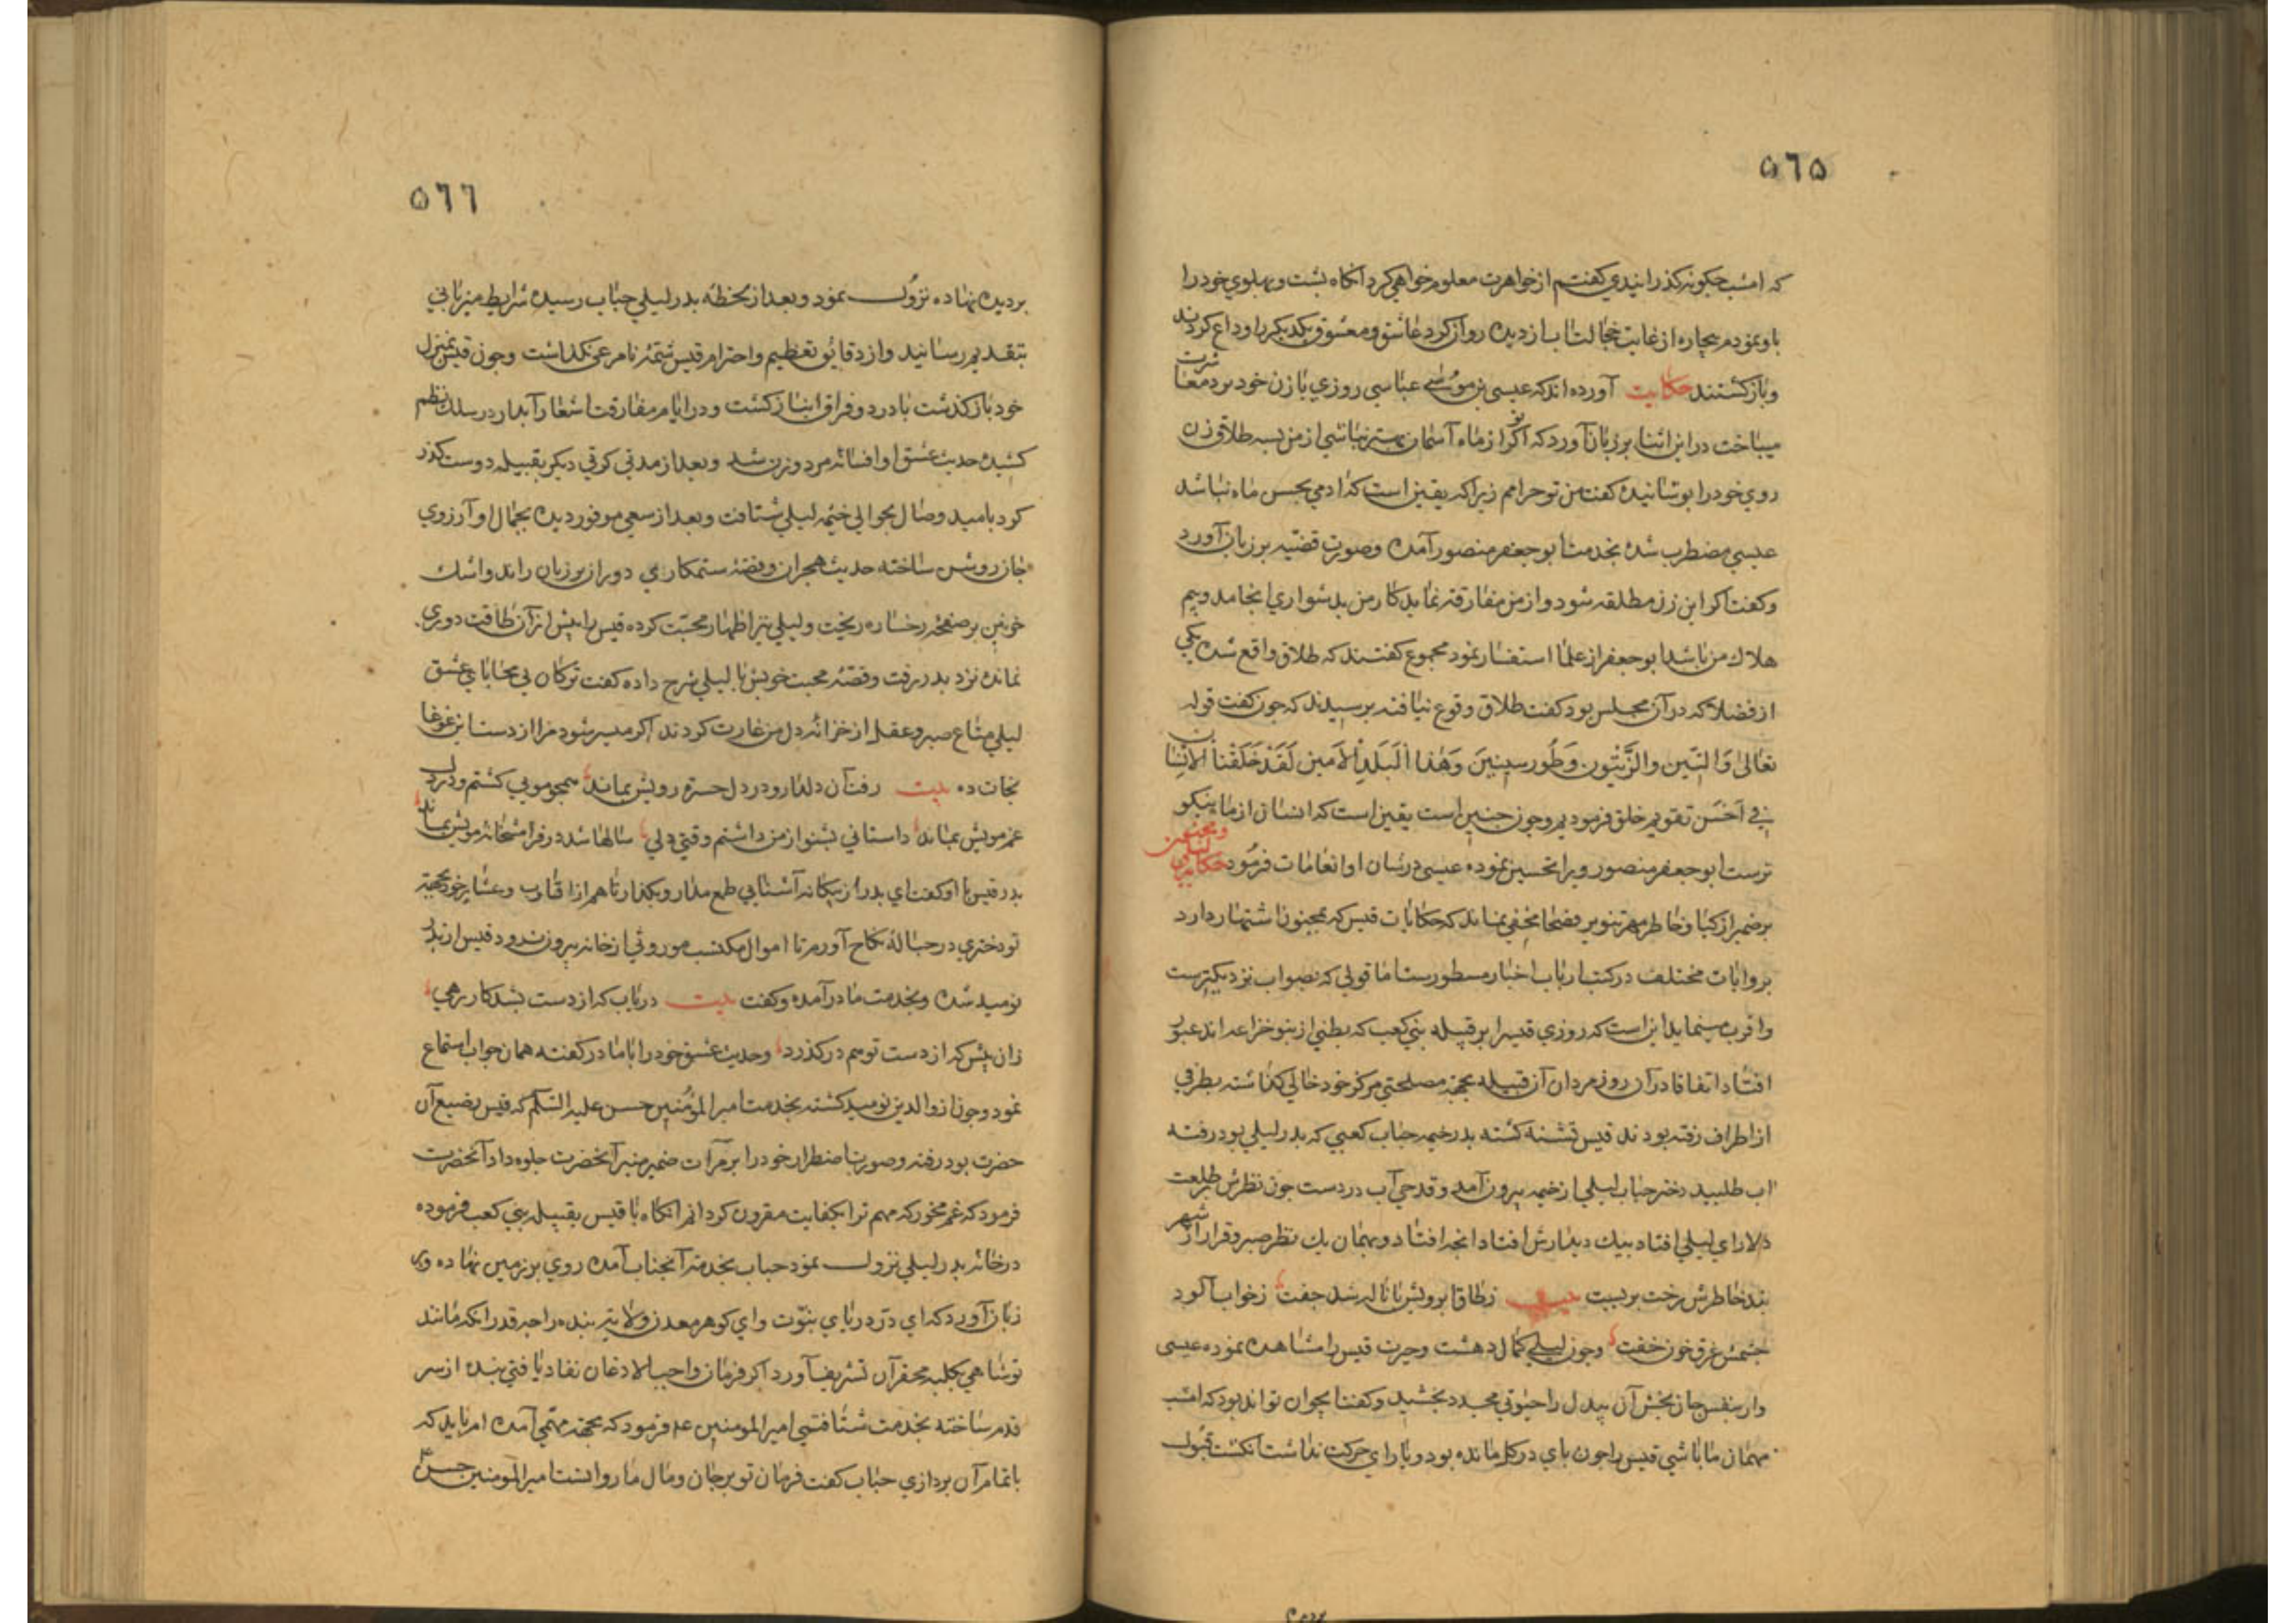 ٥٦٥
که امشب چکونه کذرانیدی کفتم از خواهرت معلوم خواهی کرد انکاه پشت و پهلوی خود را
باو نمودم بیچاره از غایت خجالت اب از دیده روان کرد عاشق و معشوق یکدیکر را وداع کردند
و باز کشتند حکایت آورده اند که عیسی بن موسی عباسی روزی با زن خود نرد معاشرت
میباخت در این اثنا بر زبان آورد که اکر تو از ماه آسمان بهتر نباشی از من بسه طلاق زن
روی خود را پوشانیده کفت من بر تو حرامم زیرا که یقین است که ادمی بحسن ماه نباشد
عیسی مضطرب شده بخدمت ابو جعفر منصور آمده و صورت قضیه بر زبان آورد
و کفت اکر این زن مطلقه شود و از من مفارقت نماید کار من بدشواری انجامد و بیم
هلاک من باشد ابو جعفر از علما استفسار نمود مجموع کفتند که طلاق واقع شده یکی
از فضلا که در آن مجلس بود کفت طلاق وقوع نیافته پرسیدند که چون کفت قوله
تعالی وَالتِّین والزَّیْتُون وَطُور سینینَ وَهٰذا الْبَلَدِ الاَمین لَقَدْ خَلَقْنا الانسان
فی اَحْسَن تقویم خلق فرمودیم و چون چنین است یقین است که انسان از ماه نیکو
ترست ابو جعفر منصور ویرا تحسین نموده عیسی در شان او انعامات فرمود حکایت لیلی و مجنون
بر ضمیر ازکیا و خاطر مهر تنویر فصحا مخفی نماند که حکایات قیس که بمجنون اشتهار دارد
بروایات مختلف در کتب ارباب اخبار مسطورست اما قولی که بصواب نزدیکترست
و اقرب مینماید این است که روزی قیس را بر قبیله بنی کعب که بطنی از بنو خزاعه اند عبور
افتاد اتفاقا در آن روز مردان آن قبیله بجهة مصلحتی مرکز خود خالی کذاشته بطرفی
از اطراف رفته بودند قیس تشنه کشته بدر خیمه حباب کعبی که پدر لیلی بود رفته
اب طلبید دختر حباب لیلی از خیمه بیرون آمد و قدحی آب در دست چون نظرش بر طلعت
دلارای لیلی افتاد بیک دیدارش افتاد انچه افتاد و بهمان یک نظر صبر و قرار از شهر
بند خاطرش رخت بربست بیت ز طاق ابرویش با ناله شد جفت ز خواب الود
چشمش غرق خون خفت و چون لیلی کمال دهشت و حیرت قیس را مشاهده نموده عیسی
وار بنفس جان بخش آن بیدل را حیوتی مجدد بخشید و کفت ایجوان تواند بود که امشب
مهمان ما باشی قیس را چون پای در کل مانده بود و یارای حرکت نداشت انکشت قبول
٥٦٦
بر دیده نهاده نزول نمود و بعد از لحظه پدر لیلی حباب رسیده شرایط میزبانی
بتقدیم رسانید و از دقائق تعظیم و احترام قیس شمّهٔ نامرعی نکذاشت و چون قیس بمنزل
خود باز کذشت با درد و فراق انباز کشت و در ایام مفارقت اشعار آبدار در سلک نظم
کشیده حدیث عشق او افسانه مرد و زن شد و بعد از مدتی کوتی دیکر بقبیله دوست کذر
کرد بامید وصال بحوالی خیمه لیلی شتافت و بعد از سعی موفور دیده بجمال او آرزوی
جان روشن ساخته حدیث هجران و قصهٔ ستمکاری دوران بر زبان راند و اشک
خونین بر صفحهٔ رخساره ریخت و لیلی نیز اظهار محبّت کرده قیس را بیش از آن طاقت دوری
نمانده نزد پدر رفت و قصهٔ محبت خویش با لیلی شرح داده کفت ترکان بی محابای عشق
لیلی متاع صبر و عقل از خزانهٔ دل من غارت کردند اکر میسر شود مرا از دست این غوغا
نجات ده بیت رفت آن دلدار و در دل حسرة رویش بماند همچو مویی کشتم و در دل
غم مویش بماند داستانی بشنو از من داشتم وقتی دلی سالها شد در فرامشخانهٔ مویش بماند
پدر قیس با او کفت ای پدر از بیکانه آشنایی طمع مدار و بکذار تا هم از اقارب و عشایر خود بجهة
تو دختری در حبالهٔ نکاح آورم تا اموال مکتسب موروثی از خانه بیرون نرود قیس از پدر
نومید شده و بخدمت مادر آمده و کفت بیت دریاب که از دست بشد کار رهی
زان پیش که از دست تو هم درکذرد و حدیث عشق خود را با مادر کفته همان جواب استماع
نمود و چون از والدین نومید کشته بخدمت امیر المؤمنین حسن علیه السلم که قیس رضیع آن
حضرت بود رفته و صورت اضطرار خود را بر مرآت ضمیر منیر آنحضرت جلوه داد آنحضرت
فرمود که غم مخور که مهم ترا بکفایت مقرون کردانم انکاه با قیس بقبیله بنی کعب فرموده
در خانهٔ پدر لیلی نزول نمود حباب بخدمت آنجناب آمده روی بر زمین نهاده و بر
زبان آورد که ای درّ دریای نبوّت و ای کوهر معدن ولایت بنده را چه قدر انکه مانند
تو شاهی بکلبه محقر آن تشریف آورد اکر فرمان واجب الاذعان نفاد یافتی بنده از سر
قدم ساخته بخدمت شتافتمی امیر المومنین ع م فرمود که بجهة مهمّی آمده ام باید که
باتمام آن پردازی حباب کفت فرمان تو بر جان و مال ما روانست امیر المومنین حسن ع